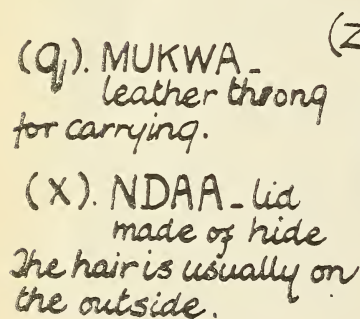 (Z
(q). MUKWA_
leather throng
for carrying.
(X). NDAA_lid
made of hide
The hair is usually on
the outside.